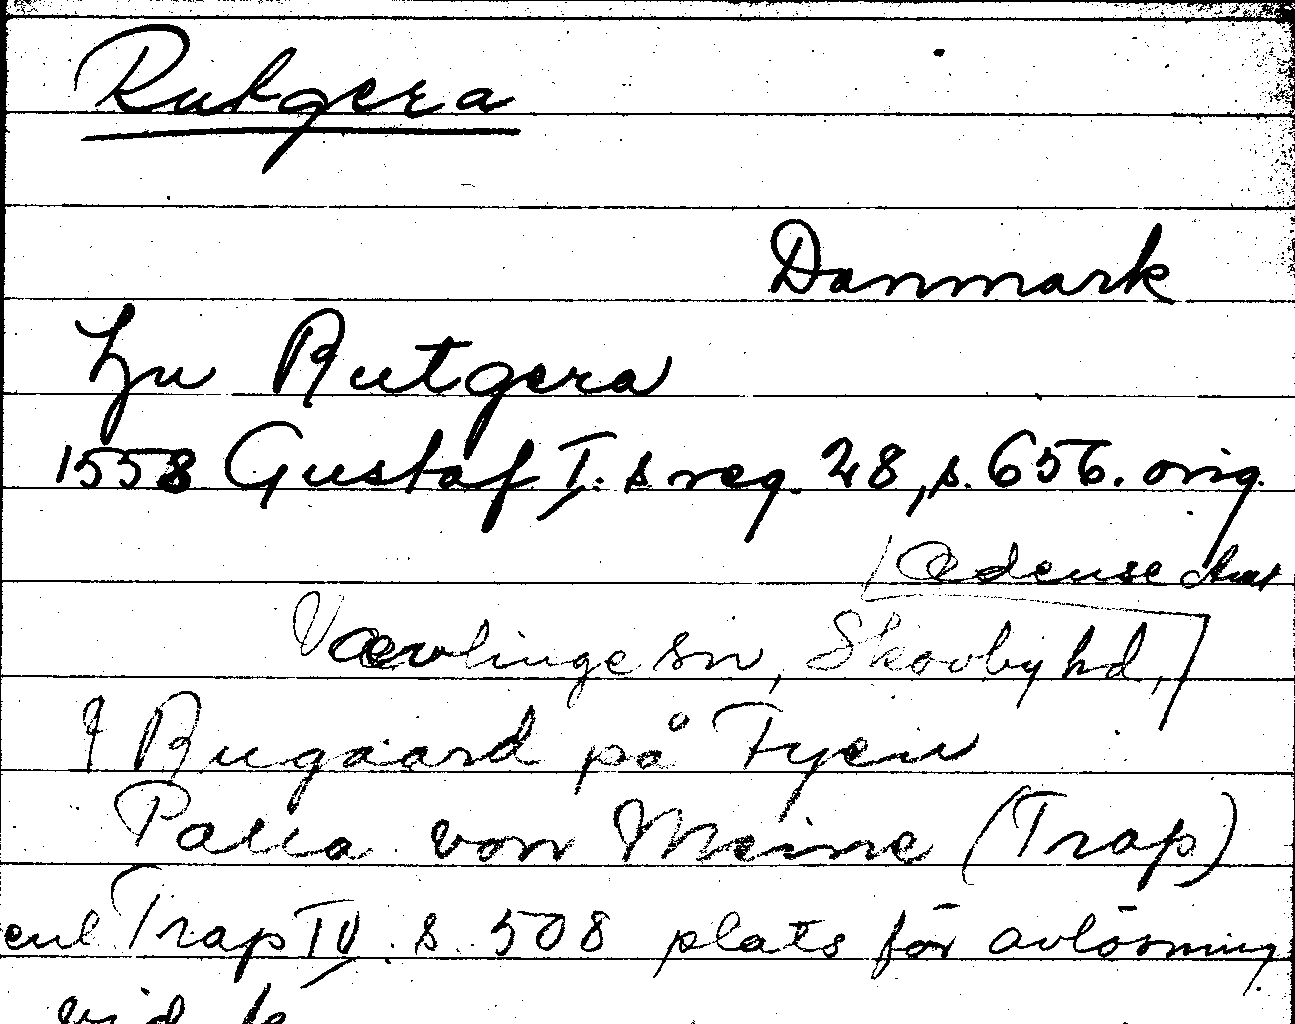 Rutgera
Danmark
zu Rutgera
1558 Gustaf I:s reg. 28, s. 656. orig.
Odense Amt
Værlinge sn, Skovby hd,
? Rugaard på Fyen
von Meine (Trap)
enl Trap IV. s. 508 plats för avlösning
vid